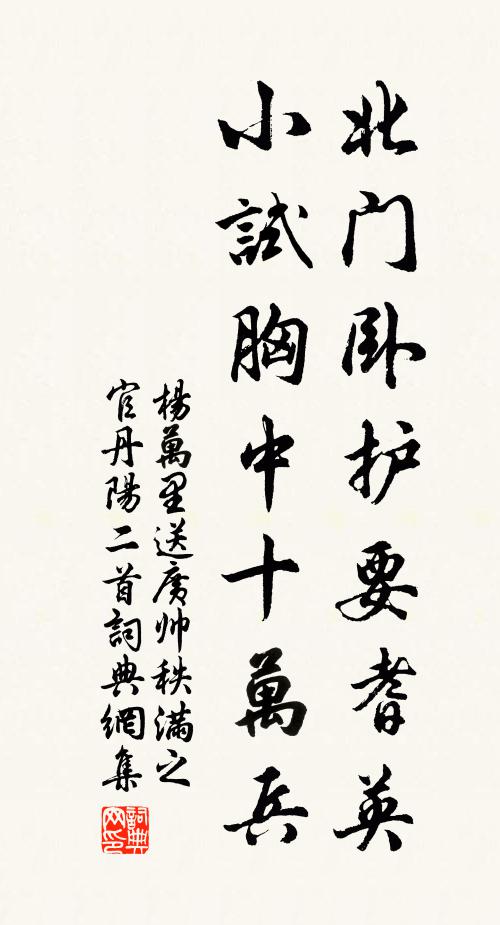 北门卧护要耆英
小試胸中十萬兵
楊萬里送廣帅秩滿之
官丹陽二首詞典網集
詞典
网印